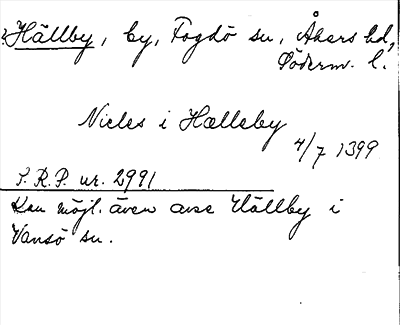 ? Hällby, by, Fogdö sn, Åkers hd,
Söderm. l.
Nicles i Hælleby
4/7 1399
S.R.P. nr. 2991
Kan möjl. även avse Hällby i
Vansö sn.